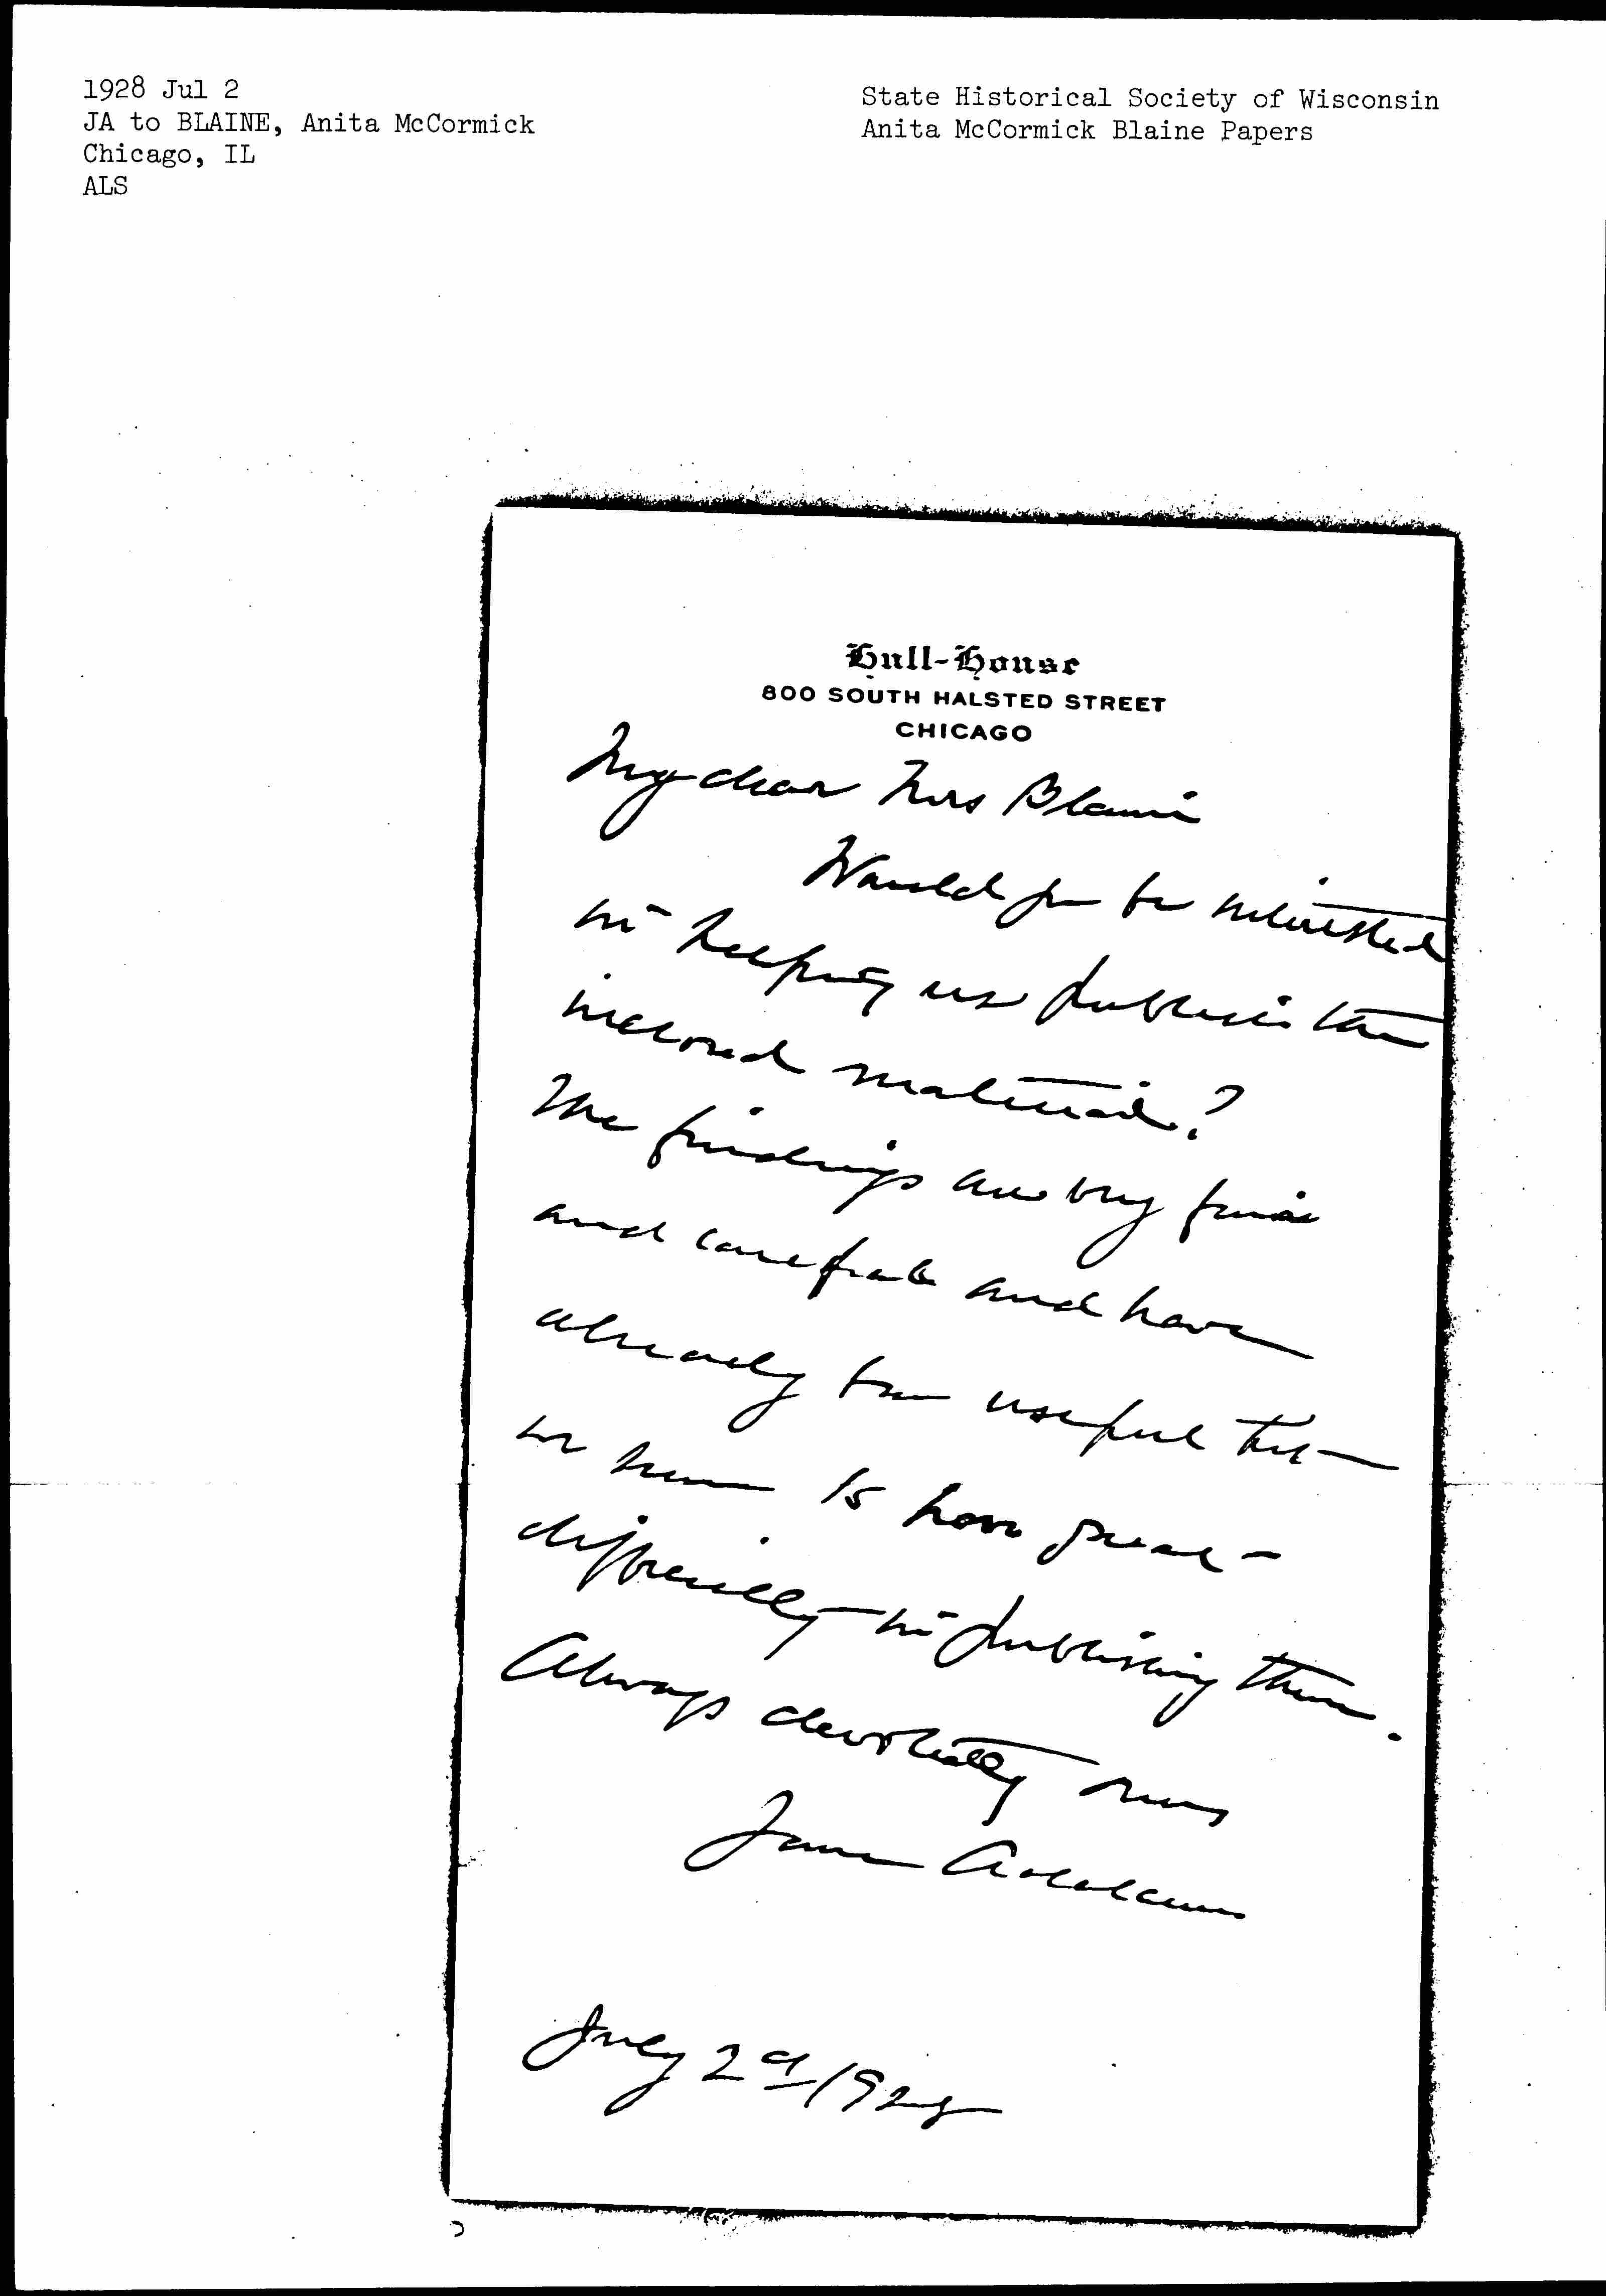 1928 Jul 2
JA to BLAINE, Anita McCormick
Chicago, IL
ALS
State Historical Society of Wisconsin
Anita McCormick Blaine Papers
Hull-House
800 SOUTH HALSTED STREET
CHICAGO
My dear Mrs Blaine
Would you be interested
in helping us publish the
inclosed material?
The findings are very fair
and careful and have
already been useful but
we seem to have great
difficulty in publishing them.
Always devotedly yours
Jane Addams
July 2d 1928